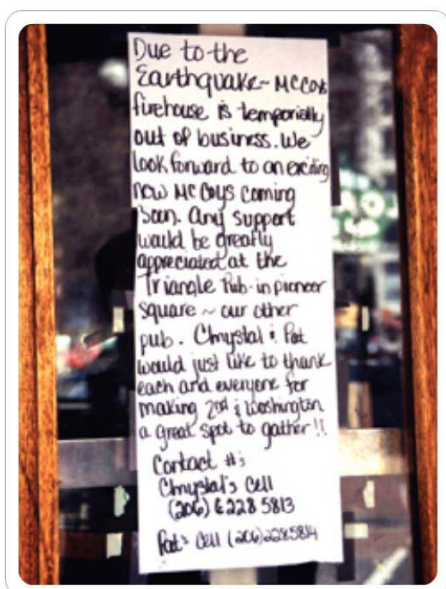 Due to the
Earthquake~ McCoys
firehouse is temporially
out of business. We
look forward to an exciting
new McCoys coming
soon. Any support
would be greatly
appreciated at the
Triangle Pub-in pioneer
square ~ our other
pub. Chrystal & Pat
would just like to thank
each and everyone for
making 2nd & Washington
a great spot to gather!!
Contact #;
Chrystal's Cell
(206) 228 5813
Pat's Cell (206) 228 5814